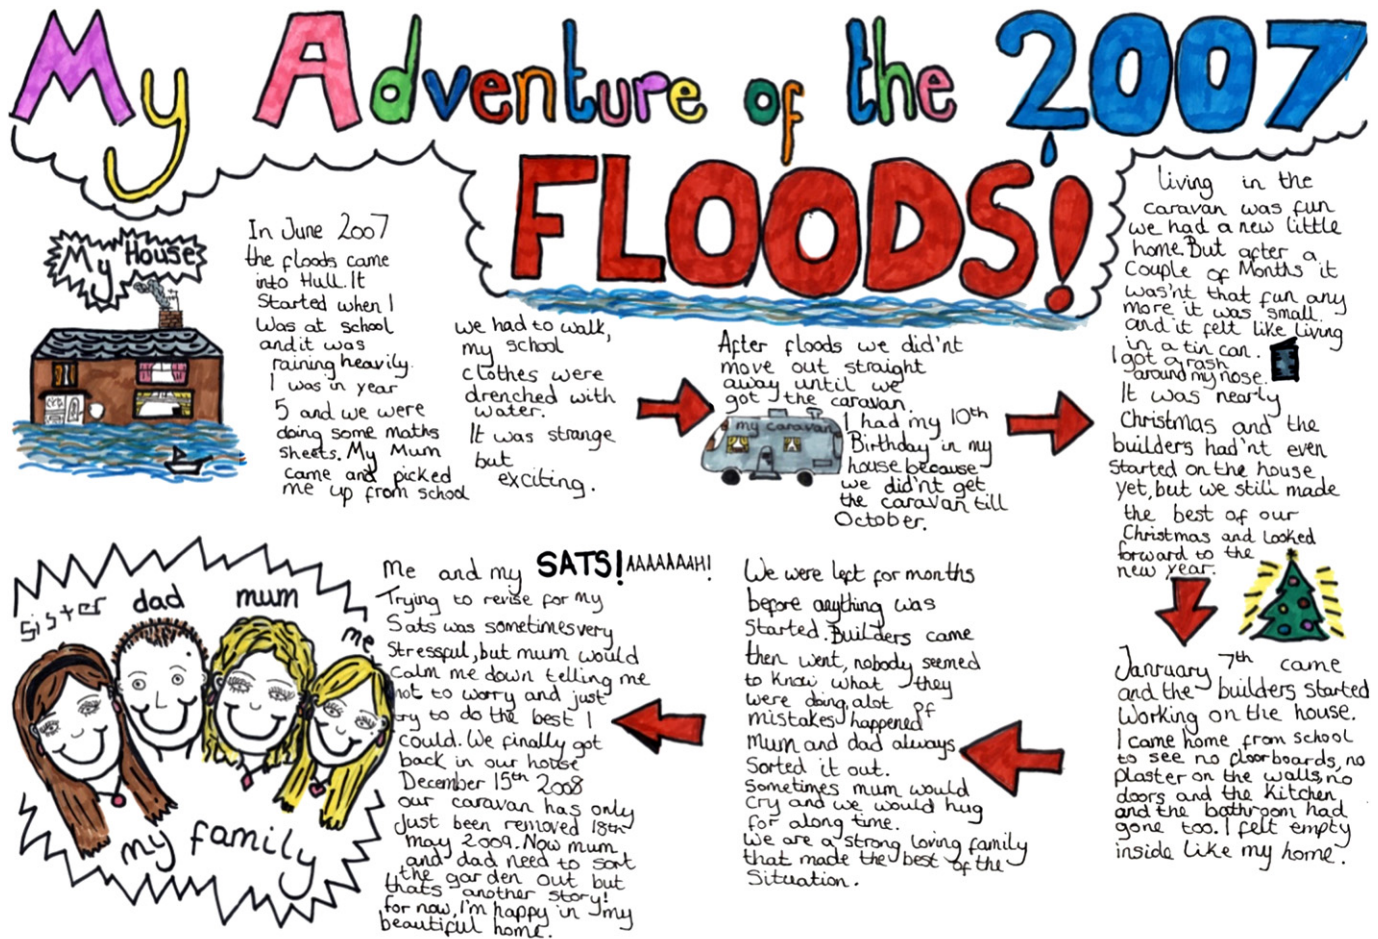 My Adventure of the 2007
FLOODS!
My House
In June 2007
the floods came
into Hull. It
Started when I
was at school
and it was
raining heavily.
I was in year
5 and we were
doing some maths
sheets. My Mum
came and picked
me up from school
we had to walk,
my school
clothes were
drenched with
water.
It was strange
but
exciting.
After floods we did'nt
move out straight
away until we
got the caravan.
my caravan
I had my 10th
Birthday in my
house because
we did'nt get
the caravan till
October.
Living in the
caravan was fun
we had a new little
home. But after a
Couple of Months it
was'nt that fun any
more it was small.
and it felt like living
in a tin can.
I got a rash
around my nose.
It was nearly
Christmas and the
builders had'nt even
started on the house
yet, but we still made
the best of our
Christmas and looked
forward to the
new year.
Janruary 7th came
and the builders started
Working on the house.
I came home from school
to see no floorboards, no
plaster on the walls, no
doors and the kitchen
and the bathroom had
gone too. I felt empty
inside like my home.
We were left for months
before anything was
Started. Builders came
then went, nobody seemed
to know what they
were doing, alot of
mistakes happened
Mum and dad always
Sorted it out.
Sometimes mum would
cry and we would hug
for along time.
We are a strong loving family
that made the best of the
Situation.
Me and my SATS! AAAAAAAH!
Trying to revise for my
Sats was sometimes very
stressful, but mum would
Calm me down telling me
not to worry and just
try to do the best I
could. We finally got
back in our house
December 15th 2008
our caravan has only
Just been removed 18th
may 2009. Now mum
and dad need to sort
the garden out but
thats another story!
for now, I'm happy in my
beautiful home.
sister
dad
mum
me
my family